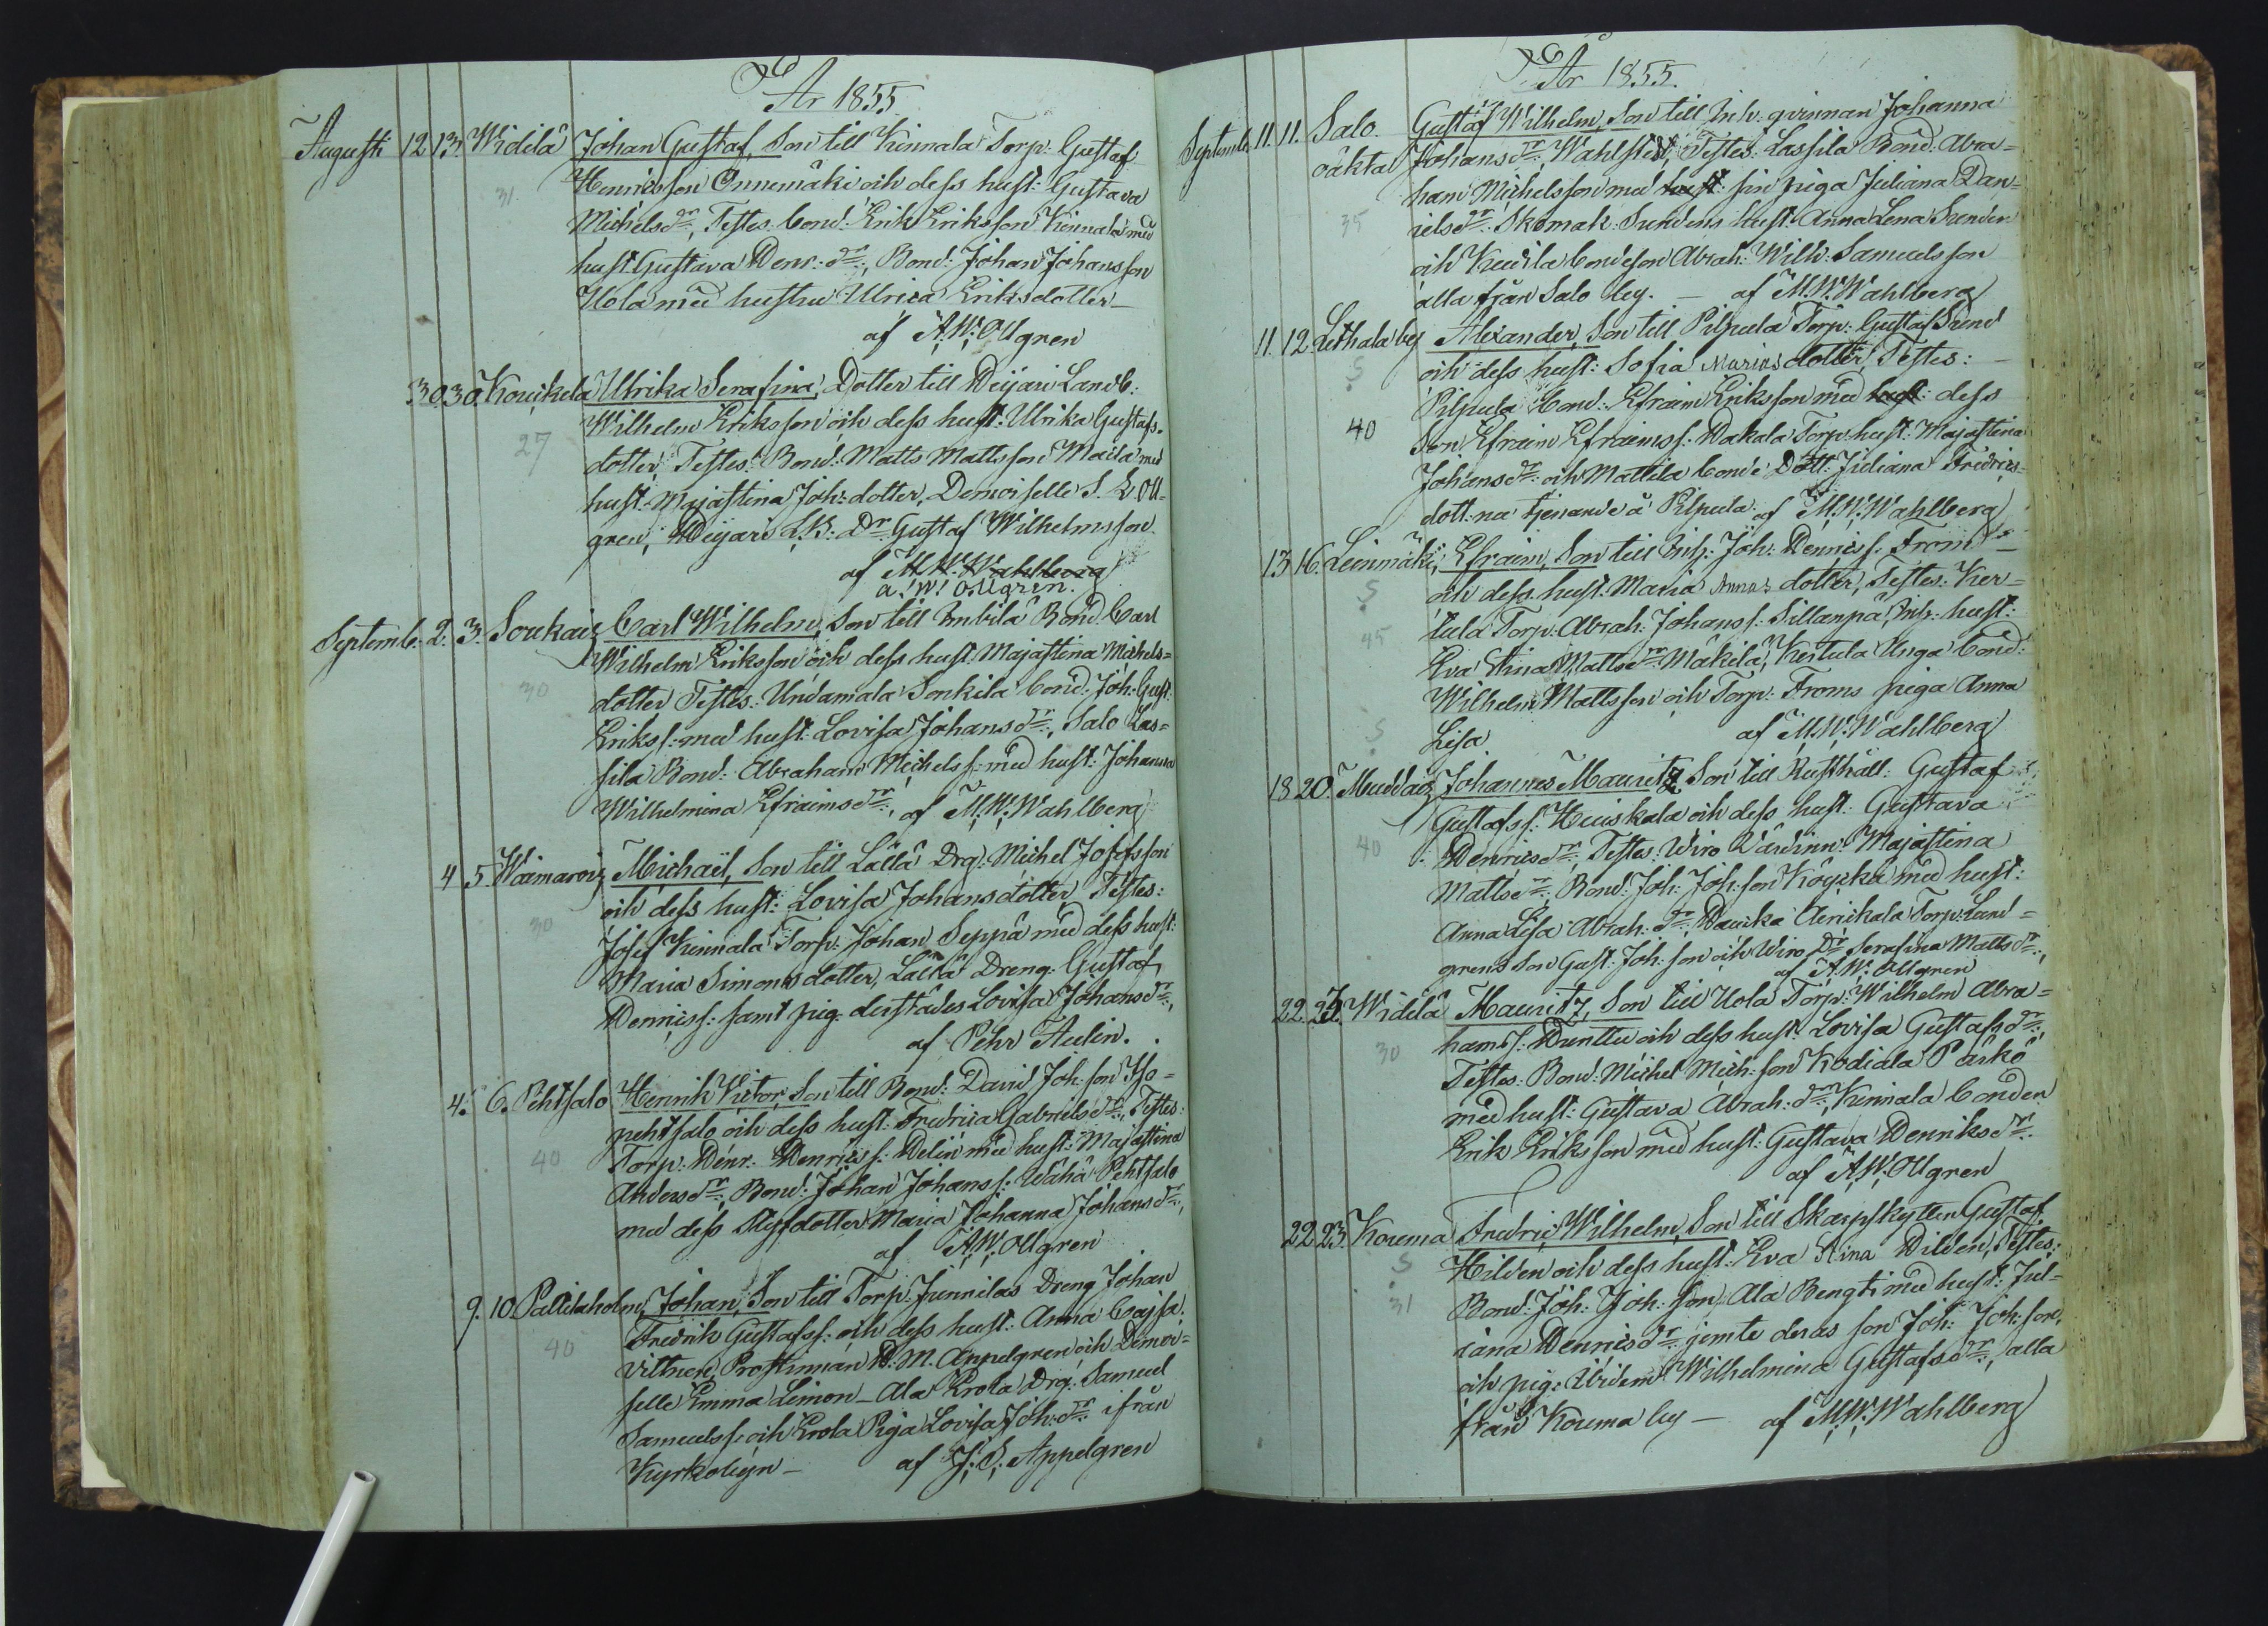 År 1855
Augusti 12 13. Widilä Johan Gustaf, Son till Kinnala Torp: Gustaf
31 Henricsson Onnemäki och dess hust: Gustava
Michelsdr, Testes bond: Erik Eriksson Kinnala med
hust Gustava Henr: dr, Bond: Johan Johansson
Uola med hustru Ulrica Eriksdotter
af A. W. Ollgren
30. 30. Kouckela Ulrika Serafina, Dotter till Heijari Landb:
Wilhelm Eriksson och dess hust: Ulrika Gustafs-
27 dotter, Testes: Bond: Matts Mattsson Maila med
hust: Majastina Joh: dotter, Demoiselle S. L. Oll-
gren, Heijari L.B: Dr Gustaf Wilhelmsson
af M. W. Wahlberg
a. W. Ollgren.
Septemb: 2. 3. Soukais Carl Wilhelm, Son till Imbilä Bond Carl
Wilhelm Eriksson och dess hust: Majastina Michels=
30 dotter Testes: Undamala Sonkila bond: Joh: Gust:
Eriks s: med hust: Lovisa Johansdr, Salo Las=
sila Bond: Abraham Michels s: med hust: Johanna
Wilhelmina Efraimsdr, af M. W. Wahlberg
4 5. Waimaroiz Michaël, Son till Lällä Drg: Michel Josefsson
och dess hust: Lovisa Johansdotter Testes:
30 Josef Kinnala Torp: Johan Seppä med dess hust:
Maria Simonsdotter, Lällä Dreng: Gustaf
Henrics s: samt pig. derstädes Lovisa Johansdr,
af Pehr Aulin.
4. 6. Pehtsalo Henrik Victor, Son till Bond: David Joh: son Iso-
pehtsalo och dess hust: Fredrica Gabrielsdr, Testes:
40 Torp: Henr: Henrics s: Helin med hust: Majastina
Andersdr, Bond: Johan Johans s: Wähä Pehtsalo
med dess styfdotter Maria Johanna Johansdr,
af A. W. Ollgren
9. 10. Pallilaholm, Johan, Son till Torp. Junnilas Dreng Johan
40 Fredrik Gustafs s: och dess hust: Anna Cajsa.
Vittnen, Prostinnan H. M. Appelgren och Demoi=
selle Emma Limon - Ala Krola Drg: Samuel
Samuels s: och Krola Piga Lovisa Joh: dr ifrån
Kyrkobyn - af J. S. Appelgren
År 1855.
Septemb: 11. 11. Salo. Gustaf Wilhelm, Son till Inh. qvinnan Johanna
oäkta Johansdr Wahlstedt, Testes: Lassila Bond: Abra=
ham Michelsson med hust: sin piga Juliana Dan=
35 ielsdr Skomak: Sundens hust: Anna Lena Sunden
och Kuvila bondeson Abrah: Wilh: Samuelsson
alla från Salo by. - af M. W. Wahlberg
11. 12. Lethala by Alexander, Son till Pilpula Torp: Gustaf Sund
S och dess hust: Sofia Mariasdotter, Testes:
Pilpula bond: Efraim Eriksson med hust: dess
40 Son Efraim Efraims s: Wakala Torp: hust: Majastina
Johansdr och Mattila bonde Dott: Juliana Fredrics-
dott: na tjenande å Pilpula. af M. W. Wahlberg
13 16. Leinmäki, Efraim, Son till Inh: Joh: Henrics s: From
S och dess hust: Maria Annas dotter, Testes: Ker=
tula Torp: Abrah: Johans s: Sillanpä, Inh: hust:
45 Eva Stina Mattsdr Mäkilä, Kertula Unga bond:
Wilhelm Mattsson och Torp: Froms piga Anna
S Lisa af M. W. Wahlberg
18 20. Muddais Johannes Mauritz, Son till Rusthåll: Gustaf
Gustafs s: Huiskala och dess hust: Gustava
40 Henricsdr Testes: Wiro Wärdinn: Majastina
Mattsdr, Bond: Joh: Joh: son Köyckä med hust:
Anna Lisa Abrah: dr, Haucka Äenickala Torp: Lund=
grens Son Gust: Joh: son och Wiro Dr Serafina Mattsdr,
af A. W. Ollgren
22. 23. Widilä Mauritz, Son till Uola Torp: Wilhelm Abra=
30 hams s: Hunttu och dess hust: Lovisa Gustafsdr,
Testes: Bond: Michel Mich: son Kodiala Päckö
med hust: Gustava Abrah: dr, Kinnala bonden
Erik Eriksson med hust: Gustava Henriksdr.
af A. W. Ollgren
22 23. Kouma Fredric Wilhelm, Son till Skarpskytten Gustaf
S Hilden och dess hust: Eva Stina Hilden, Testes:
31 Bond: Joh: Joh: son Ala Bengti med hust: Jul=
iana Henricsdr jemte deras son Joh: Joh: son,
och pig: Ibidem Wilhelmina Gustafsdr, alla
från Kouma by - af M. W. Wahlberg